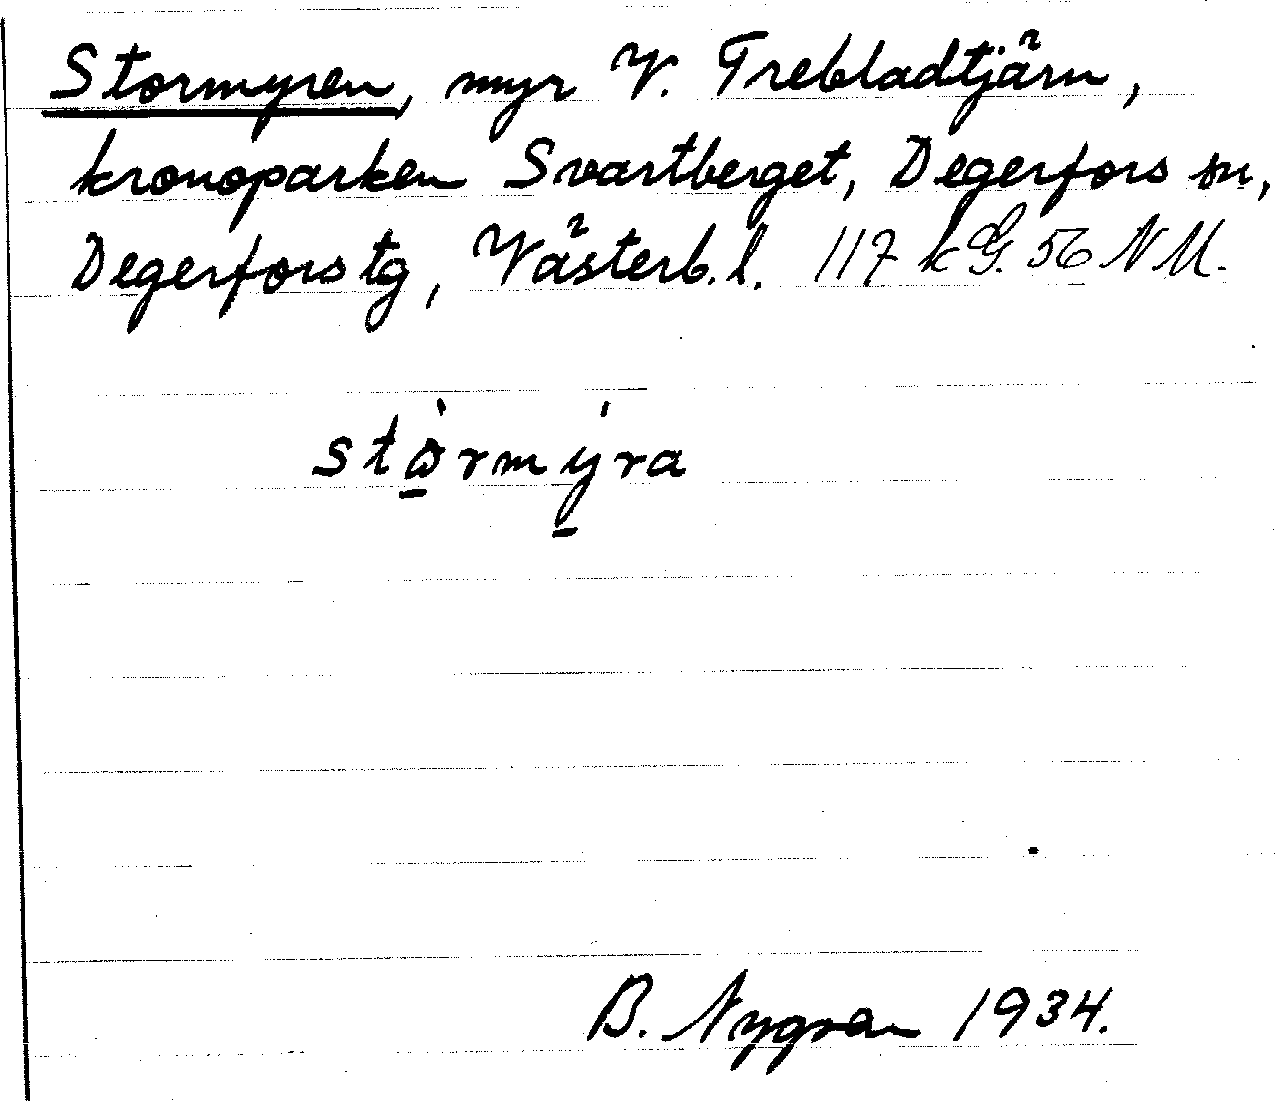 Stormyren, myr V. Trebladtjärn,
kronoparken Svartberget, Degerfors sn,
Degerfors tg, Västerb. l. 117 k G. 56 NM.
stòrmýra
B. Nygren 1934.